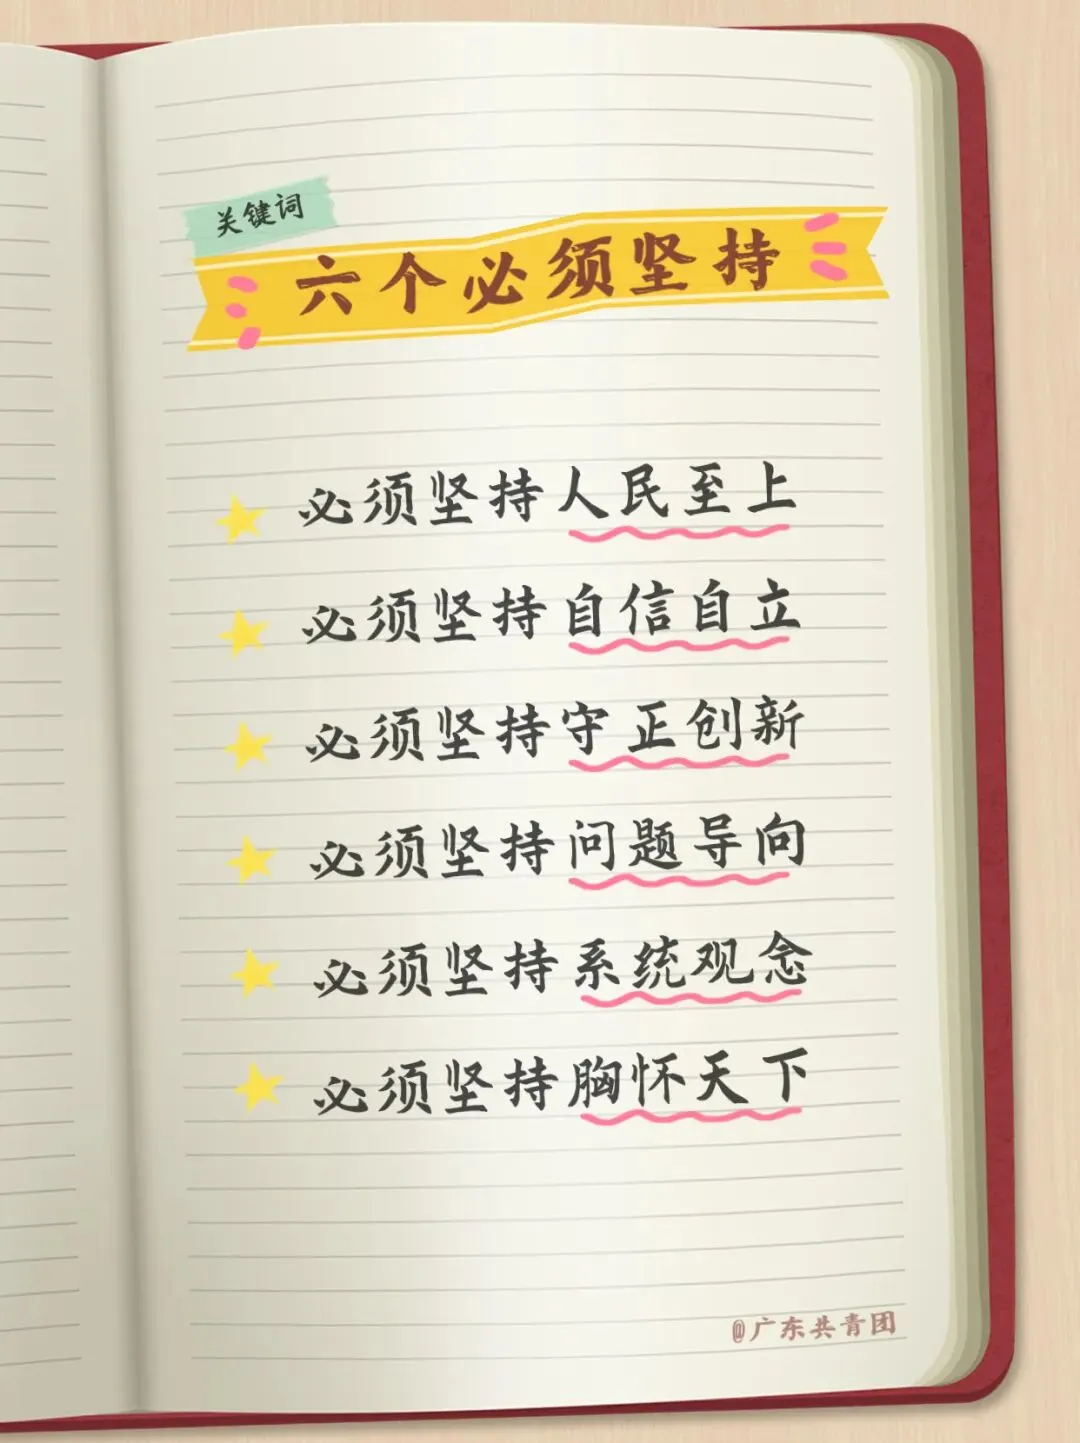 关键词
六个必须坚持
必须坚持人民至上
必须坚持自信自立
必须坚持守正创新
必须坚持问题导向
必须坚持系统观念
必须坚持胸怀天下
@广东共青团